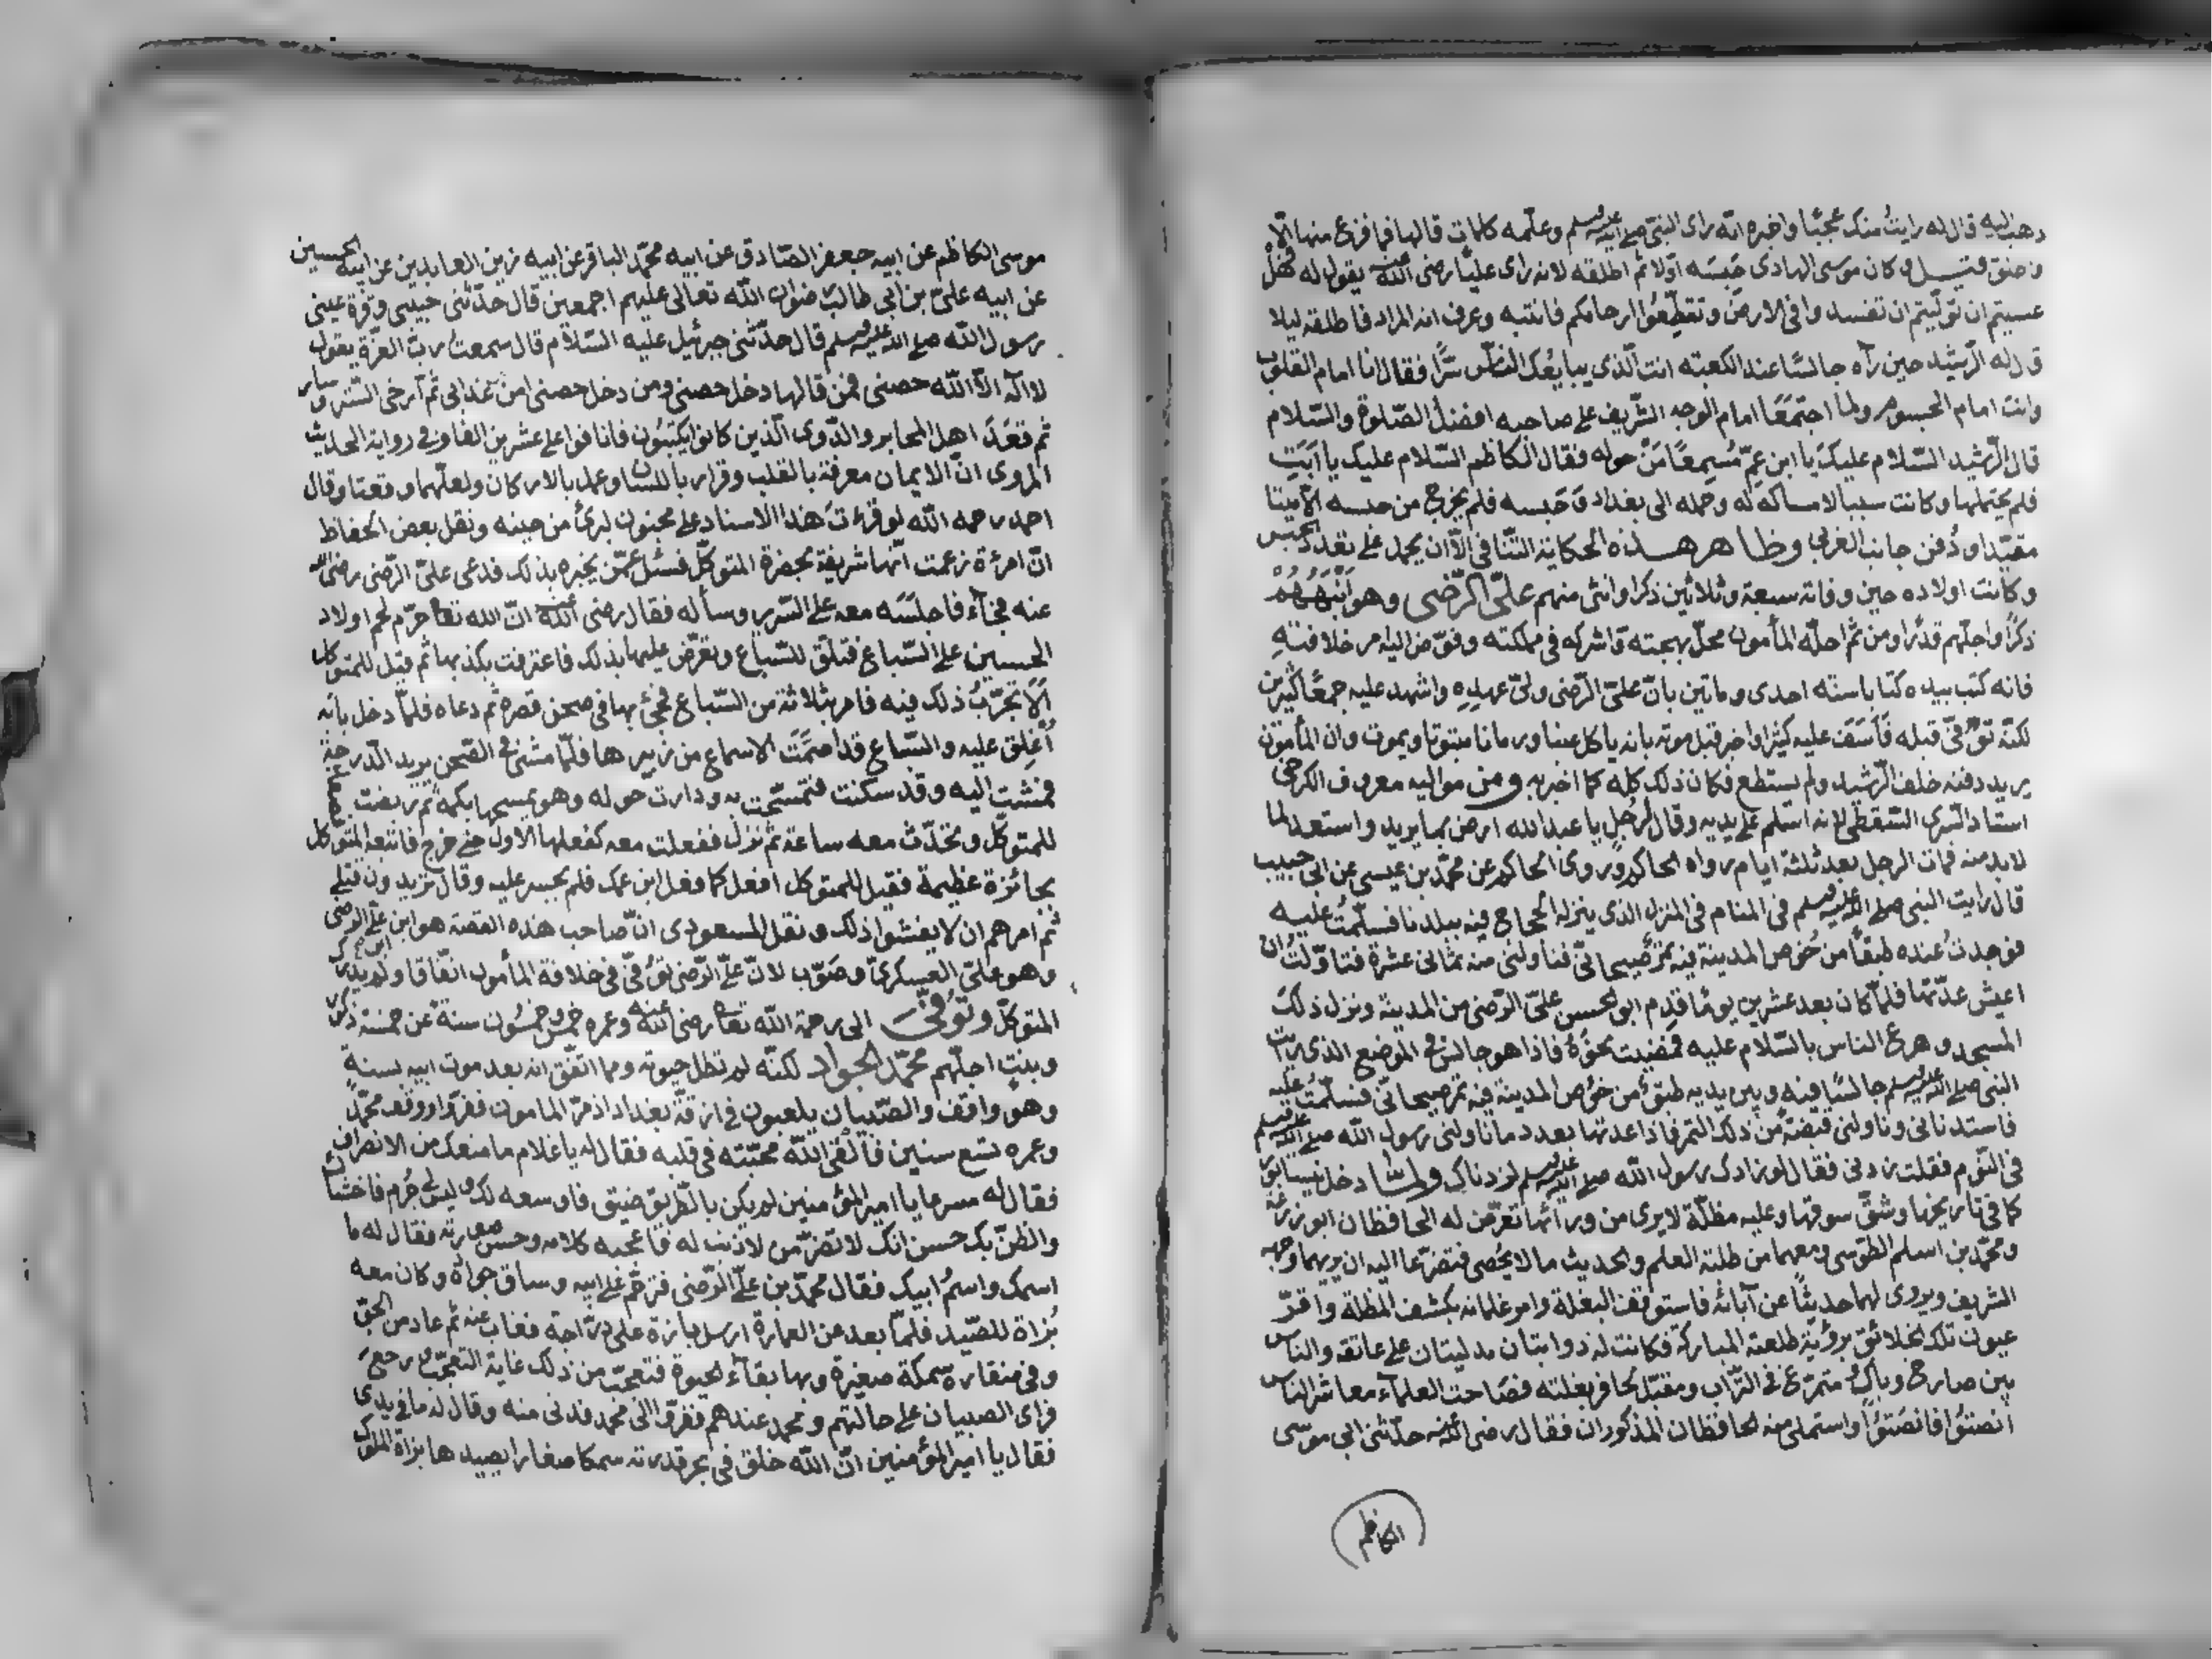 ذهب اليه قال له رايت منك عجبا واخبره انه راى النبي صلى الله عليه وسلم وعلمه كلمات قالها فما فرغ منها الا
واطلق قيل وكان موسى الهادى حبسه اولا ثم اطلقه لانه راى عليا رضى الله عنه يقول له فهل
عسيتم ان توليتم ان تفسدوا في الارض وتقطعوا ارحامكم فانتبه وعرف انه المراد فاطلقه ليلا
قال له الرشيد حين رآه جالسا عند الكعبة انت الذي يبايعك الناس سرا فقال انا امام القلوب
وانت امام الجسوم ولما اجتمعا امام الوجه الشريف على صاحبه افضل الصلوة والسلام
قال الرشيد السلام عليك يا ابن عم مسمعا من حوله فقال الكاظم السلام عليك يا ابت
فلم يحتملها وكانت سببا لامساكه له وحمله الى بغداد وحبسه فلم يخرج من حبسه الا ميتا
مقيدا ودفن جانب الغربي وظاهر هذه الحكاية التنافي الا ان يحمل على تعدد الحبس
وكانت اولاده حين وفاته سبعة وثلاثين ذكرا وانثى منهم على الرضى وهو انبههم
ذكرا واجلهم قدرا ومن ثم احله المأمون محل بهجته واشركه في مملكته وفوض اليه امر خلافته
فانه كتب بيده كتابا سنة احدى وماتين بان على الرضى ولى عهده واشهد عليه جمعا كثيرين
لكنه توفي قبله فأسف عليه كثيرا واخبر قبل موته بانه ياكل عنبا ورمانا مبثوثا ويموت وان المأمون
يريد دفنه خلف الرشيد ولم يستطع فكان ذلك كله كما اخبر به ومن مواليه معروف الكرخي
استاذ السرى السقطى لانه اسلم على يديه وقال لرجل يا عبد الله ارض بما يريد واستعد لما
لا بد منه فمات الرجل بعد ثلثة ايام رواه الحاكم وروى الحاكم عن محمد بن عيسى عن ابى حبيب
قال رايت النبي صلى الله عليه وسلم في المنام في المنزل الذى ينزله الحجاج فيه ببلدنا فسلمت عليه
فوجدت عنده طبقا من خوص المدينة فيه تمر صيحاني فناولني منه ثماني عشرة فتاولت ان
اعيش عدتها فلما كان بعد عشرين يوما قدم ابو الحسن على الرضى من المدينة ونزل ذلك
المسجد وهرع الناس بالسلام عليه فمضيت نحوه فاذا هو جالس في الموضع الذى رايت
النبي صلى الله عليه وسلم جالسا فيه وبين يديه طبق من خوص المدينة فيه تمر صيحاني فسلمت عليه
فاستدناني وناولني قبضة من ذلك التمر فاذا عدتها بعدد ما ناولني رسول الله صلى الله عليه وسلم
في النوم فقلت زدنى فقال لو زادك رسول الله صلى الله عليه وسلم لزدناك ولما دخل نيسابور
كما في تاريخها وشق سوقها وعليه مظلة لا يرى من ورائها تعرض له الحافظان ابو زرعة
ومحمد بن اسلم الطوسى ومعهما من طلبة العلم والحديث ما لا يحصى فتضرعا اليه ان يريهما وجهه
الشريف ويروى لهما حديثا عن آبائه فاستوقف البغلة وامر غلمانه بكشف المظلة واقر
عيون تلك الخلائق برؤية طلعته المباركة فكانت له ذوابتان مدليتان على عاتقه والناس
بين صارخ وباك ومتمرغ في التراب ومقبل لحافر بغلته فصاحت العلماء معاشر الناس
انصتوا فانصتوا واستملى منه الحافظان المذكوران فقال رضى الله عنه حدثني ابي موسى
الكاظم
موسى الكاظم عن ابيه جعفر الصادق عن ابيه محمد الباقر عن ابيه زين العابدين عن ابيه الحسين
عن ابيه على بن ابي طالب رضوان الله تعالى عليهم اجمعين قال حدثني حبيبى وقرة عينى
رسول الله صلى الله عليه وسلم قال حدثني جبرئيل عليه السلام قال سمعت رب العزة يقول
لا اله الا الله حصنى فمن قالها دخل حصنى ومن دخل حصنى امن عذابى ثم ارخى الستر وسار
ثم فعد اهل المحابر والدوى الذين كانوا يكتبون فانافوا على عشرين الفا وفي رواية الحديث
المروى ان الايمان معرفة بالقلب وقرار باللسان وعمل بالاركان ولعلهما وقعتا وقال
احمد رحمه الله لو قرءت هذا الاسناد على مجنون لبرئ من جنته ونقل بعض الحفاظ
ان امرءة زعمت انها شريفة بحضرة المتوكل فسئل عمن يخبره بذلك فدعى على الرضى رضى الله
عنه فجآء فاجلسه معه على السرير وسأله فقال رضى الله عنه ان الله تعا حرم لحم اولاد
الحسين على السباع فتلق للسباع وتعرض عليها بذلك فاعترفت بكذبها ثم قيل للمتوكل
الا تجرب ذلك فيه فامر بثلاثة من السباع فجئ بها في صحن قصره ثم دعاه فلما دخل بابه
اغلق عليه والسباع قد اصمت الاسماع من زئيرها فلما مشى في الصحن يريد الدرجة
فمشت اليه وقد سكنت فتمسحت به ودارت حوله وهو يمسحها بكمه ثم ربضت فصعد
للمتوكل وتحدث معه ساعة ثم نزل ففعلت معه كفعلها الاول حتى خرج فاتبعه المتوكل
بجائزة عظيمة فقيل للمتوكل افعل كما فعل ابن عمك فلم يجسر عليه وقال تريدون قتلى
ثم امرهم ان لا يفشوا ذلك ونقل المسعودى ان صاحب هذه القصة هو ابن ابن على الرضى
وهو على العسكرى وصوب لان على الرضى توفي في خلافة المأمون اتفاقا ولم يدرك
المتوكل وتوفى الى رحمة الله تعا رضى الله عنه وعمره خمس وخمسون سنة عن خمسة ذكور
وبنت اجلهم محمد الجواد لكنه لم تطل حيوته ومما اتفق انه بعد موت ابيه بسنة
وهو واقف والصبيان يلعبون في ازقة بغداد اذ مر المامون ففروا ووقف محمد
وعمره تسع سنين فألقى الله محبته في قلبه فقال له يا غلام ما منعك من الانصراف
فقال له مسرعا يا امير المؤمنين لم يكن بالطريق ضيق فاوسعه لك وليس لى جرم فاخشاك
والظن بك حسن انك لا تضر من لا ذنب له فاعجبه كلامه وحسن صورته فقال له ما
اسمك واسم ابيك فقال محمد بن على الرضى فترحم على ابيه وساق جواده وكان معه
بزاة للصيد فلما بعد عن العمارة ارسل بازة على دراجة فغاب عنه ثم عاد من الجو
وفي منقاره سمكة صغيرة وبها بقاء الحيوة فتعجب من ذلك غاية التعجب ورجع
فراى الصبيان على حالتهم ومحمد عندهم ففروا الى محمد فدنى منه وقال له ما في يدى
فقال يا امير المؤمنين ان الله خلق في بحر قدرته سمكا صغارا يصيدها بزاة الملوك